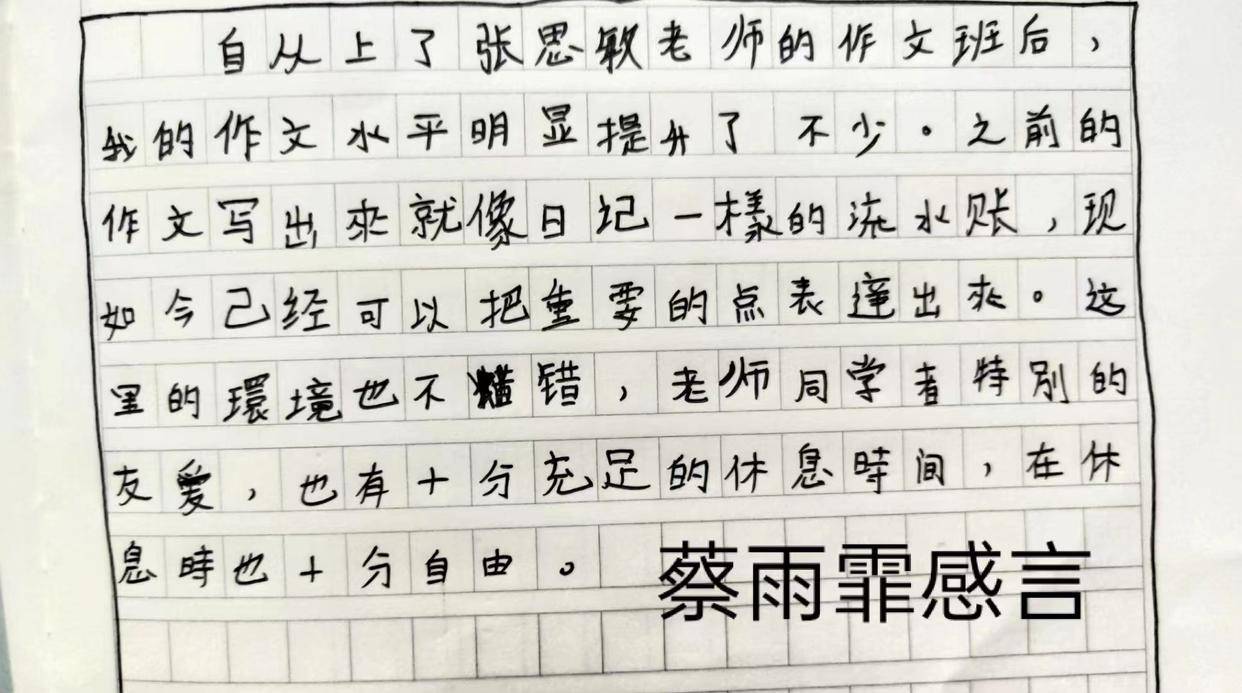 自从上了张思敏老师的作文班后，
我的作文水平明显提升了不少。之前的
作文写出來就像日记一樣的流水账，现
如今己经可以把重要的点表達出來。这
里的環境也不错，老师同学者特别的
友爱，也有十分充足的休息時间，在休
息時也十分自由。
蔡雨霏感言